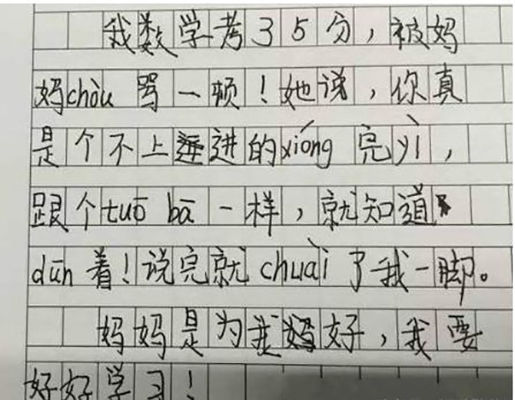 我数学考35分,被妈
妈chòu 骂一顿!她说,你真
是个不上进的xióng 完yì,
跟个tuō bā 一样,就知道
dūn 着!说完就 chuài 了我一脚。
妈妈是为我好,我要
好好学习!